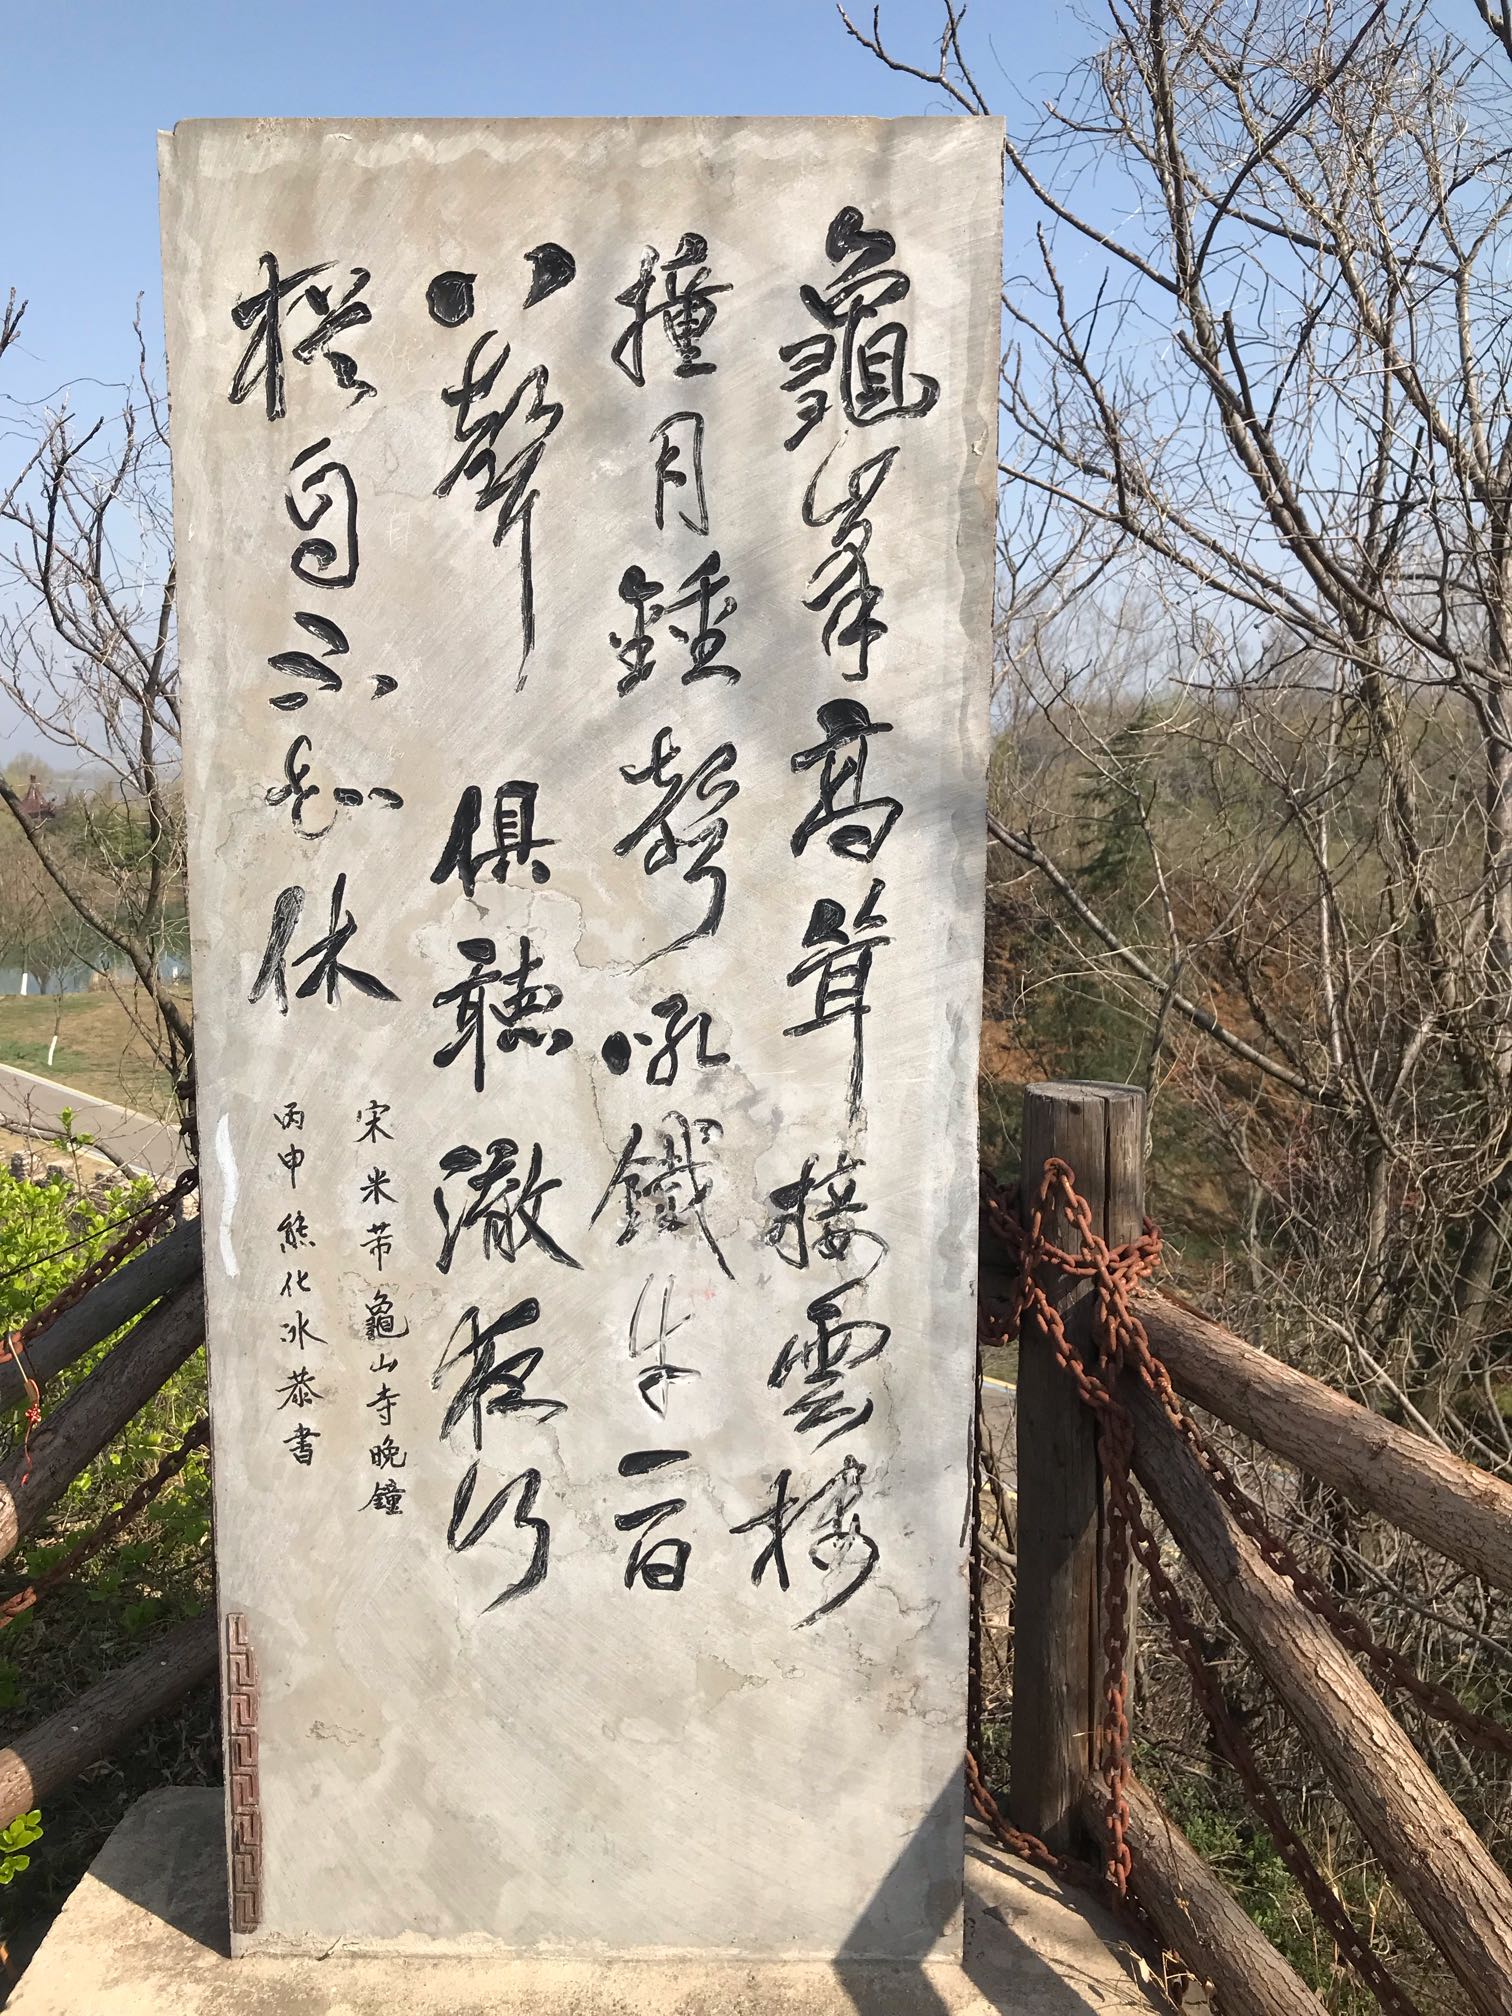 龜峯高聳接雲樓
撞月鍾聲吼鐵牛一百
八聲俱聽徹夜行
猶自不知休
宋米芾龜山寺晚鐘
丙申熊化冰恭書